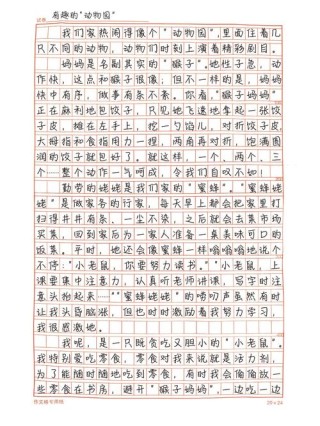 有趣的“动物园”
我们家热闹得像个“动物园”,里面住着几
只不同的动物,动物们时刻上演着精彩剧目。
妈妈是名副其实的“猴子”。她性子急,动
作快,这点和猴子很像,但不一样的是,妈妈
快中有序,做事有条不紊。你看,“猴子妈妈”
正在麻利地包饺子,只见她飞速地拿起一张饺
子皮,摊在左手上,挖一勺馅儿,对折饺子皮
大拇指和食指用力一捏,两角再对折,饱满圆
润的饺子就包好了。就这样,一个,两个,三
个……整个动作一气呵成,令我们自叹不如!
勤劳的姥姥是我们家的“蜜蜂”。“蜜蜂姥
姥”是做家务的行家,每天早上都会把家里打
扫得井井有条,一尘不染,之后就会去集市场
买菜,回到家后为一家人准备一桌美味可口的
饭菜。平时,她还会像蜜蜂一样嗡嗡嗡地说个
不停:“小老鼠,你要努力读书。”“小老鼠,上
课要集中注意力,认真听老师讲课,写字时注
意头抬起来……”“蜜蜂姥姥”的唠叨声虽然有时
让我头昏脑涨,但也时时激励着我努力学习,
我很感激她。
我呢,是一只既贪吃又胆小的“小老鼠”。
我特别爱吃零食,零食对我来说就是活力剂,
为了能随时随地吃到零食,有时我会偷偷地放一
些零食在书房,避开“猴子妈妈”,一边吃一边